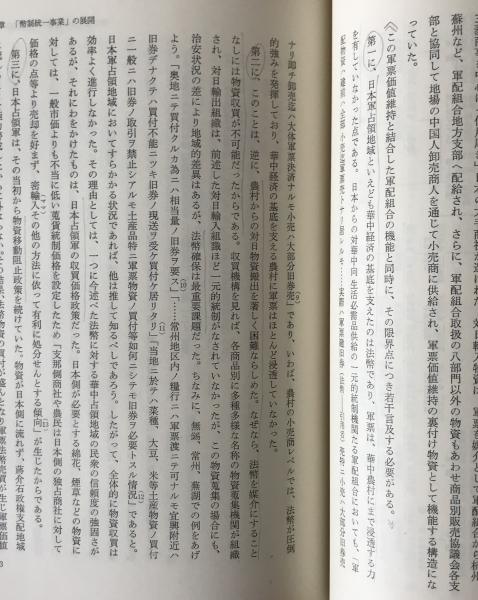 蘇州など、軍配組合地方支部へ配給され、さらに、軍配組合取扱の八部門以外の物資もあわせ商品別販売協議会各支
部と協同して地場の中国人卸売商人を通じて小売商に供給され、軍票価値維持の裏付け物資として機能する構造にな
っていた。
《この軍票価値維持と結合した軍配組合の機能と同時に、その限界点につき若干言及する必要がある。
第一に、日本軍占領地域といえども華中経済の基底を支えたのは法幣であり、軍票は、華中農村にまで浸透する力
を有していなかった点である。日本からの対華中向生活必需品供給の一元的統制機関たる軍配組合においても、「軍
ナリ即チ卸売迄ハ大体軍票決済ナルモ小売ハ大部分旧券売」(9)であり、いわば、農村の小売商レベルでは、法幣が圧倒
的強みを発揮しており、華中経済の基底を支える農村に軍票はほとんど浸透していなかった。
第二に、このことは、逆に、農村からの対日物資搬出を著しく困難ならしめた。なぜなら、法幣を媒介にすること
なしには物資収買が不可能だったからである。収買機構を見れば、各商品別に多種多様な名称の物資蒐集機関が組織
され、対日輸出組織は、前述した対日輸入組織ほど一元的統制がなされていなかったが、この物資蒐集の場合にも、
治安状況の差により地域的差異はあるが、法幣確保は最重要課題だった。ちなみに、無錫、常州、蕪湖での例をあげ
よう。「奥地ニテ買付クルカ為ニハ相当量ノ旧券ヲ要ス」(10)「……常州地区内ノ糧行ニハ軍票渡ニテ可ナルモ宜興附近ハ
旧券デナクテハ買付不能ニツキ旧券ノ現送ヲ受ケ買付ケ居リタリ」(11)「当地ニ於テハ菜種、大豆、米等土産物資ノ買付
ニハ一般ニハ旧券ノ取引ヲ禁止シアルモ土産品特ニ軍票物資ノ買付等如何ニシテモ旧券ヲ必要トスル情況」(12)であると。
日本軍占領地域においてすらかかる状況であれば、他は推して知るべしであろう。したがって、全体的に物資収買は
効率よく進行しなかった。その理由としては、一つに今述べた法幣に対する華中占領地域の民衆の信頼度の強固さが
あるが、それにわをかけたものは、日本占領軍の収買価格政策だった。日本側が必要とする綿花、煙草などの物資に
対しては、一般市価よりも不当に低い蒐貨統制価格を設定したため「支那側商社や農民は日本側の独占商社に対して
価格の点等より売却を好まず、密輸入その他の方法に依って有利に処分せんとする傾向」(13)が生じたからである。
第三に、日本占領軍は、その当初から物資移動阻止政策を続けていた。物資が日本側に流れず、蔣介石政権支配地域
章 「幣制統一事業」の展開